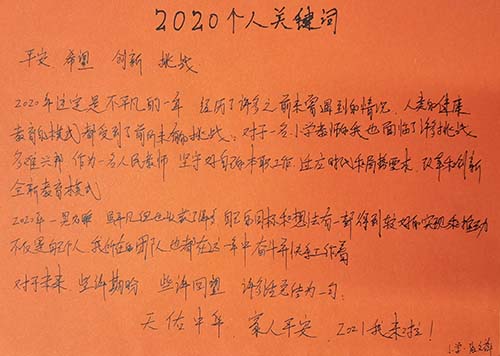 2020个人关键词
平安 希望 创新 挑战
2020年注定是不平凡的一年 经历了许多之前未曾遇到的情况 人类的健康
教育的模式都受到了前所未有的挑战。对于一名小学教师的我也面临了许多挑战
多难兴邦 作为一名人民教师 坚守好自己的本职工作 适应时代和局势要求 改革和创新
全新教育模式
2020年 平凡但也收获了 自己的目标和想法有一部得到较好的实现和推动
不仅是自己个人 我所在的团队也都在这一年中奋斗并快乐工作着
对于未来 些许期盼 些许回望 许多话凭信为一句:
天佑中华 家人平安 2021我来啦!